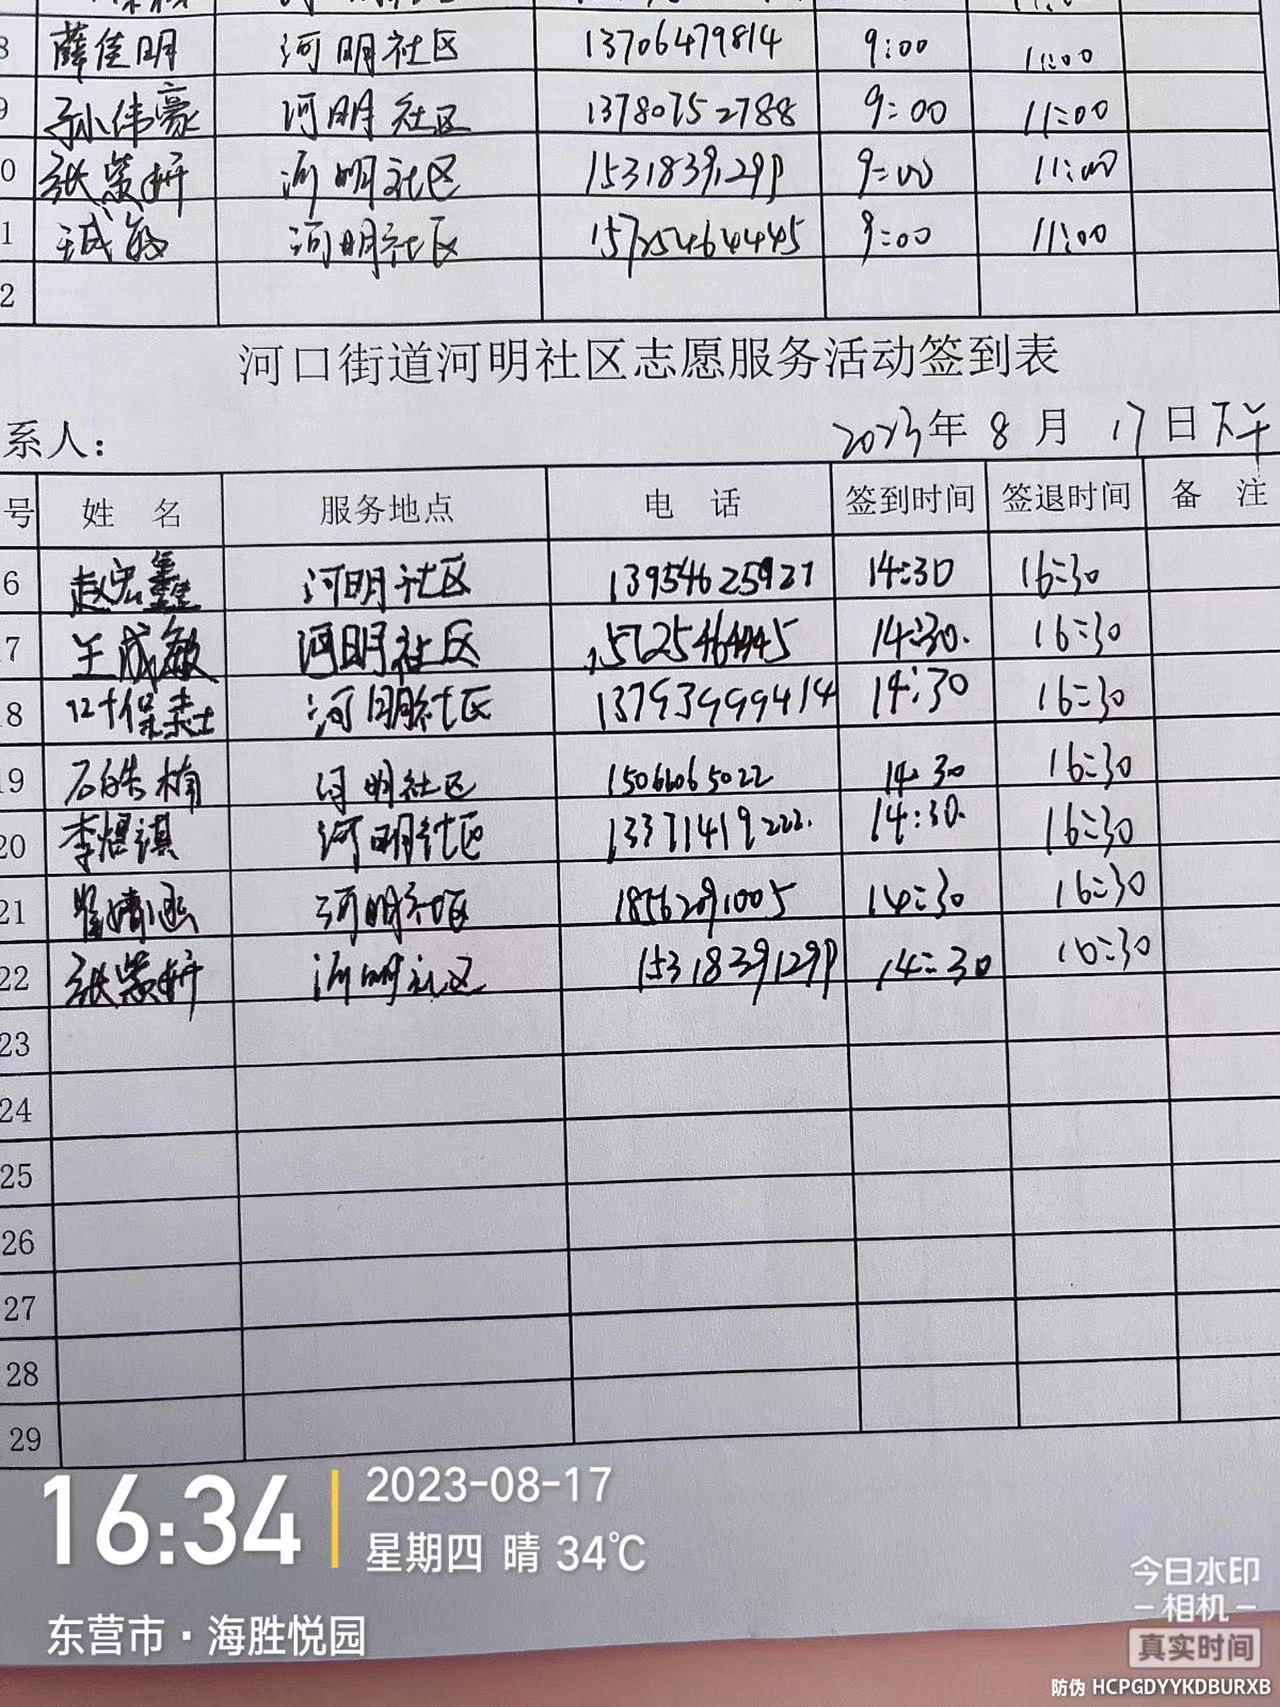 8 薛佳明 河明社区 13706479814 9:00 11:00
9 孙伟豪 河明社区 13780752788 9:00 11:00
0 张 妍 河明社区 15318391299 9:00 11:00
1 河明社区 15725464445 9:00 11:00
2
河口街道河明社区志愿服务活动签到表
系人: 2023年 8 月 17 日 下午
号 姓 名 服务地点 电 话 签到时间 签退时间 备 注
6 赵宏鑫 河明社区 13954625927 14:30 16:30
7 王成敏 河明社区 15725464445 14:30. 16:30
8 河明社区 13793999414 14:30 16:30
19 石皓楠 河明社区 15066065022 14:30 16:30
20 李煜祺 河明社区 13371419222. 14:30. 16:30
21 河明社区 18562091005 14:30 16:30
22 张 妍 河明社区 15318391299 14:30 16:30
23
24
25
26
27
28
29
16:34
2023-08-17
星期四 晴 34℃
东营市·海胜悦园
今日水印
-相机-
真实时间
防伪 HCPGDYYKDBURXB